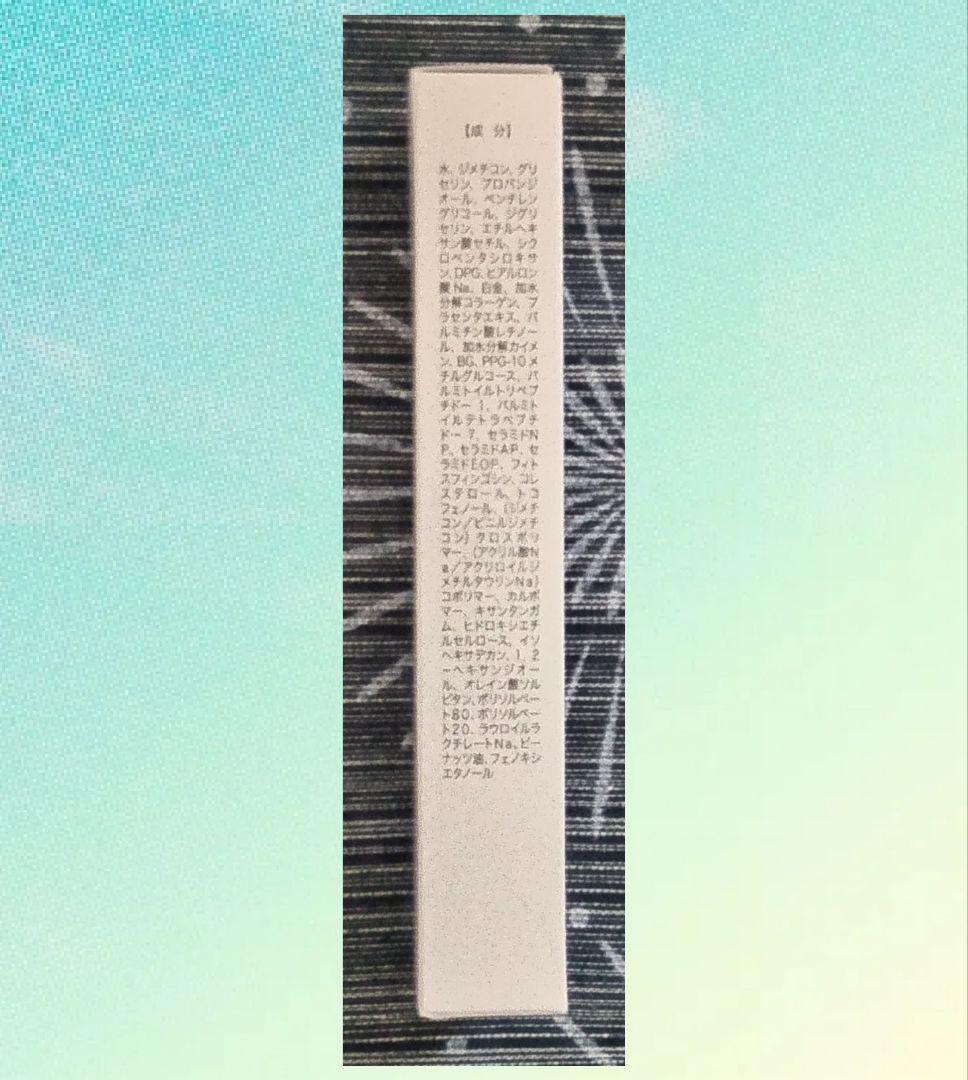 【成 分】
水、ジメチコン、グリ
セリン、プロパンジ
オール、ペンチレン
グリコール、ジグリ
セリン、エチルヘキ
サン酸セチル、シク
ロペンタシロキサ
ン、DPG、ヒアルロン
酸Na、白金、加水
分解コラーゲン、プ
ラセンタエキス、パ
ルミチン酸レチノー
ル、加水分解カイメ
ン、BG、PPG-10メ
チルグルコース、パ
ルミトイルトリペプ
チドー1、パルミト
イルテトラペプチ
ドー7、セラミドN
P、セラミドAP、セ
ラミドEOP、フィト
スフィンゴシン、コレ
ステロール、トコ
フェノール、(ジメチ
コン/ビニルジメチ
コン)クロスポリ
マー、(アクリル酸N
a/アクリロイルジ
メチルタウリンNa)
コポリマー、カルボ
マー、キサンタンガ
ム、ヒドロキシエチ
ルセルロース、イソ
ヘキサデカン、1，2
ーヘキサンジオー
ル、オレイン酸ソル
ビタン、ポリソルベー
ト80、ポリソルベー
ト20、ラウロイルラ
クチレートNa、ピー
ナッツ油、フェノキシ
エタノール